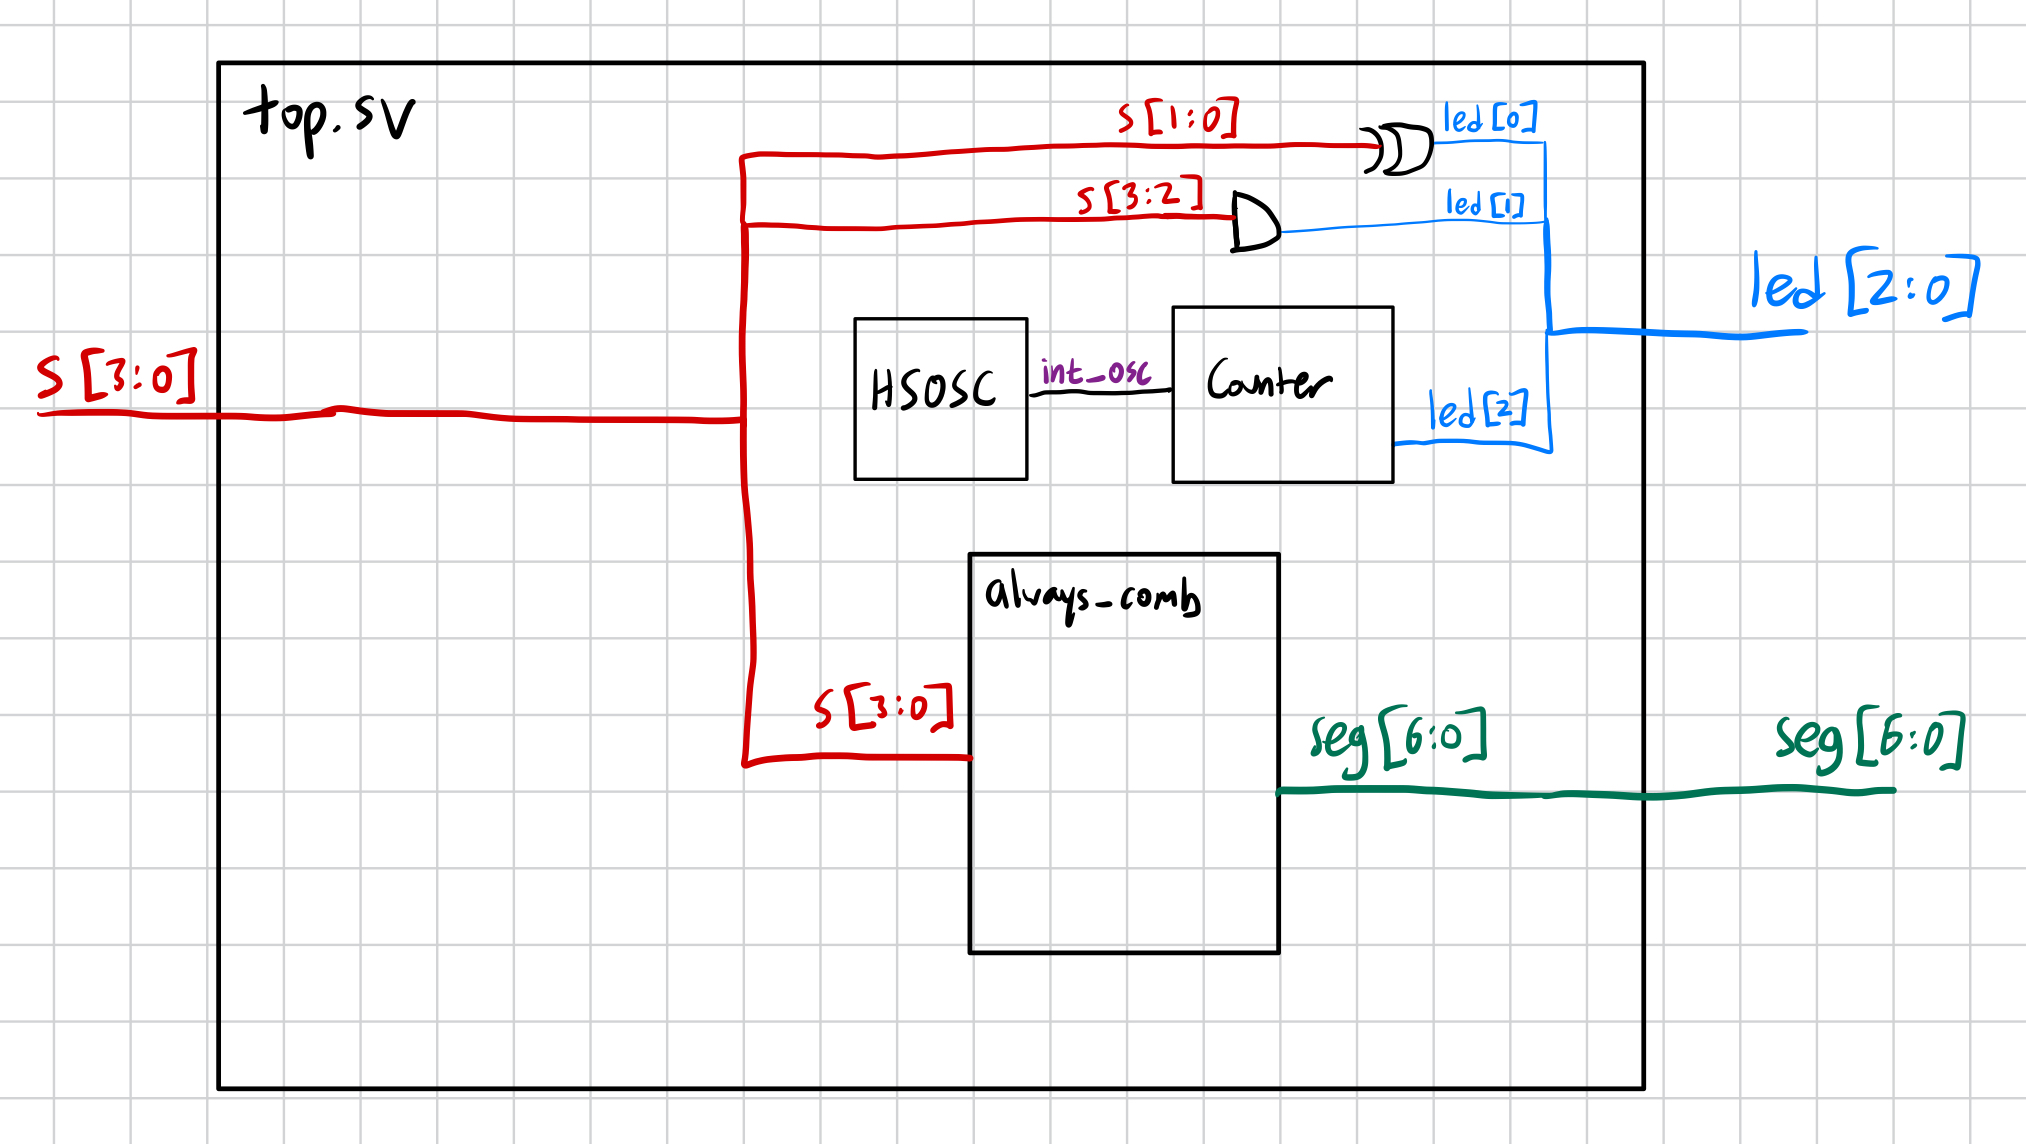 top.sv
s[1:0]
led[0]
s[3:2]
led[1]
led[2:0]
s[3:0]
HSOSC
int_osc
Counter
led[2]
always_comb
s[3:0]
seg[6:0]
seg[6:0]